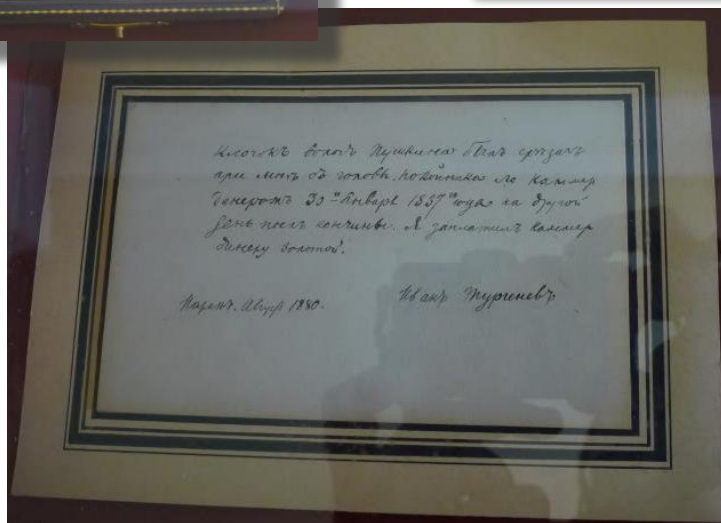 Клочокъ волосъ Пушкина былъ срѣзанъ
при мнѣ съ головы покойника его каммер
динеромъ 30го Января 1837го года на другой
день послѣ кончины. Я заплатилъ каммер
динеру золотой.
Парижъ. Августъ 1880.      Иванъ Тургеневъ